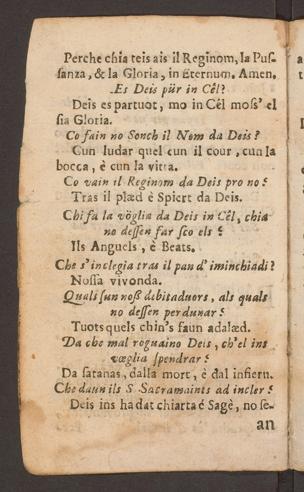 Perche chia teis ais il Reginom, la Pus-
sanza, & la Gloria, in Eternum. Amen.
Es Deis pür in Cêl?
Deis es partuot, mo in Cêl moss' el
sia Gloria.
Co fain no Sonch il Nom da Deis?
Cun ludar quel cun il cour, cun la
bocca, è cun la vitta.
Co vain il Reginom da Deis pro no?
Tras il plæd è Spiert da Deis.
Chi fa la vöglia da Deis in Cêl, chia
no dessen far sco els?
Ils Anguels, è Beats.
Che s'inclegia tras il pan d'iminchiadi?
Nossa vivonda.
Quals sun noss debitaduors, als quals
no dessen perdunar?
Tuots quels chin's faun adalæd.
Da che mal roguaino Deis, ch'el ins
vœglia spendrar?
Da satanas, dalla mort, è dal infieru.
Che daun ils S Sacramaints ad incler?
Deis ins ha dat chiarta è Sagè, no se-
an